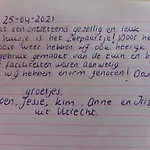 25-04-2021
Wat een ontzettend gezellig en leuk
huisje is het Zeepaartje! Door het
mooie weer hebben wij ook heerlijk
gebruik gemaakt van de tuin, en b
faciliteiten waren aanwezig.
wij hebben enorm genoten! Da
groetjes,
oen, Jesje, Kim, Anne en Iris
uit Utrecht.